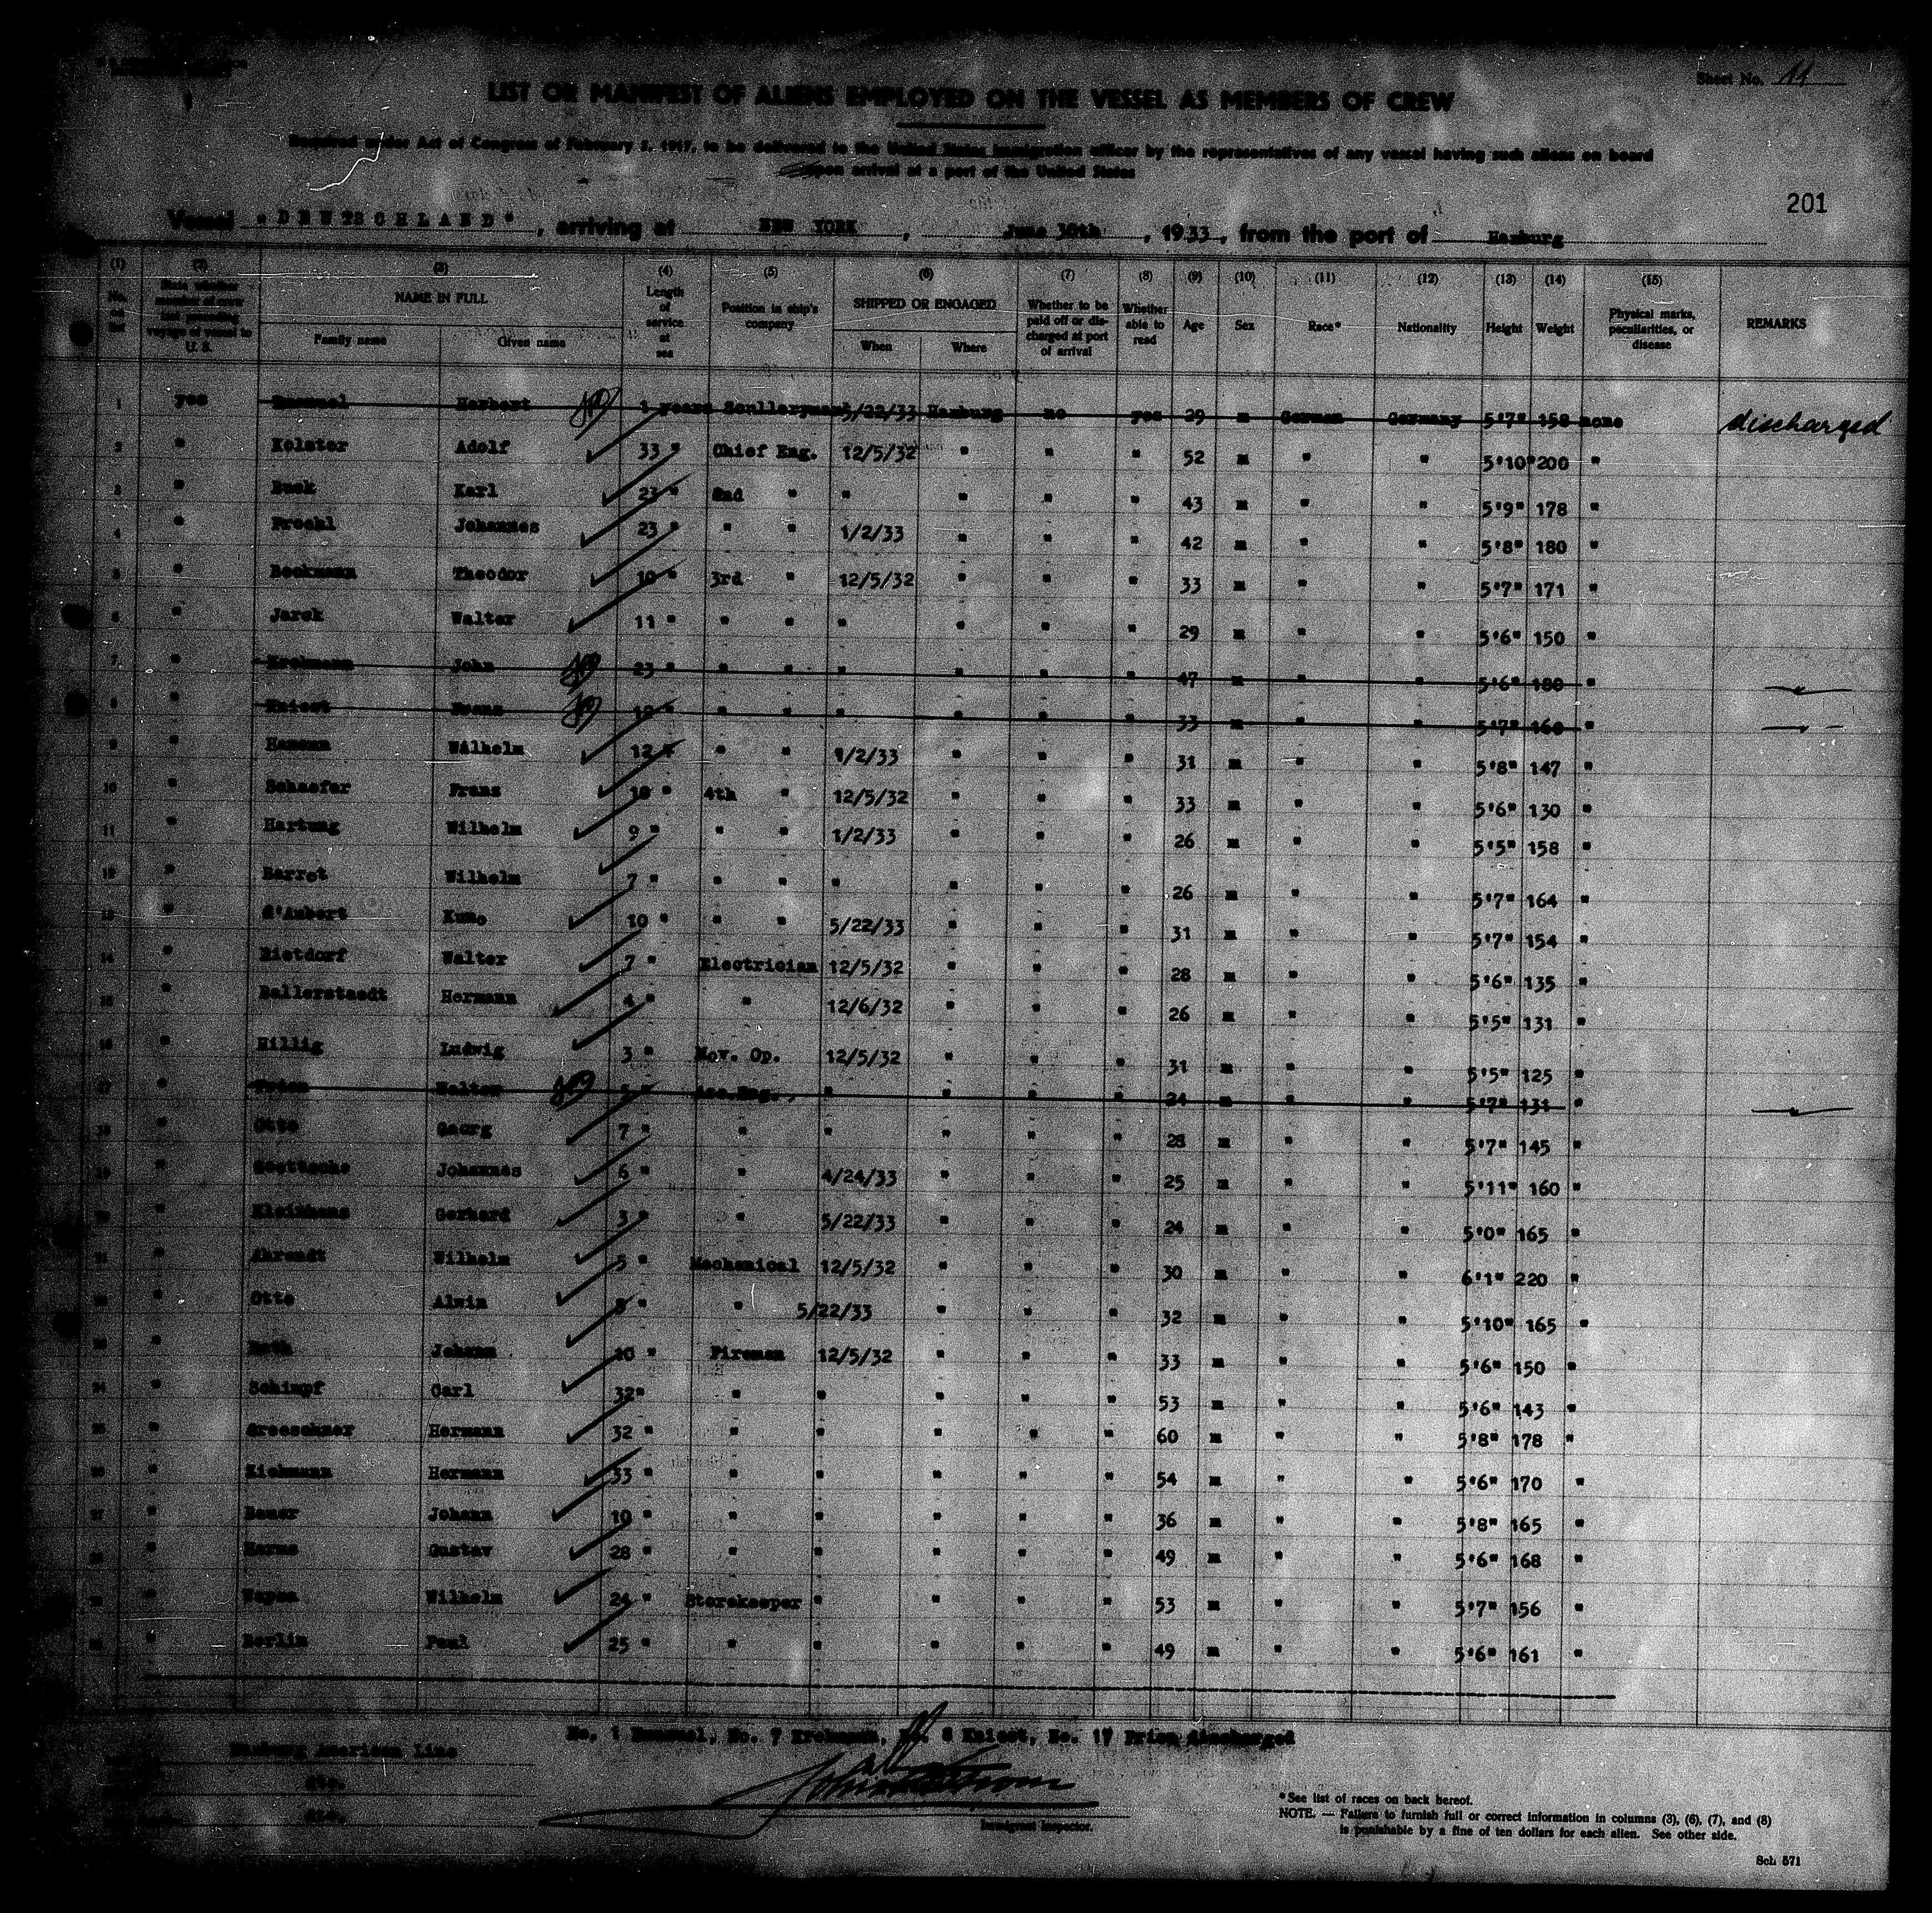 Sheet No. 11
LIST OR MANIFEST OF ALIENS EMPLOYED ON THE VESSEL AS MEMBERS OF CREW
Required under Act of Congress of February 5, 1917, to be delivered to the United States immigration officer by the representatives of any vessel having such aliens on board
upon arrival at a port of the United States
201
Vessel "DEUTSCHLAND", arriving at NEW YORK, June 30th, 1933, from the port of Hamburg
(1) (2) (3) (4) (5) (6) (7) (8) (9) (10) (11) (12) (13) (14) (15)
No. on list State whether member of crew last preceding voyage of vessel to U. S. NAME IN FULL Family name Given name Length of service at sea Position in ship's company SHIPPED OR ENGAGED When Where Whether to be paid off or discharged at port of arrival Whether able to read Age Sex Race* Nationality Height Weight Physical marks, peculiarities, or disease REMARKS
1 yes Herbert 1 years Sculleryman 5/22/33 Hamburg no yes 29 m German Germany 5'7" 158 none discharged
2 " Kolster Adolf 33 " Chief Eng. 12/5/32 " " " 52 m " " 5'10" 200 "
3 " Buck Karl 23 " 2nd " " " " " 43 m " " 5'9" 178 "
4 " Proehl Johannes 23 " " " 1/2/33 " " " 42 m " " 5'8" 180 "
5 " Beckmann Theodor 10 " 3rd " 12/5/32 " " " 33 m " " 5'7" 171 "
6 " Jarck Walter 11 " " " " " " " 29 m " " 5'6" 150 "
7 " Krohmann John 23 " " " " " " " 47 m " " 5'6" 180 "
8 " Kniest 10 " " " " " " " 33 m " " 5'7" 160 "
9 " Hamann Wilhelm 12 " " " 1/2/33 " " " 31 m " " 5'8" 147 "
10 " Schaefer Franz 10 " 4th " 12/5/32 " " " 33 m " " 5'6" 130 "
11 " Hartung Wilhelm 9 " " " 1/2/33 " " " 26 m " " 5'5" 158 "
12 " Barret Wilhelm 7 " " " " " " " 26 m " " 5'7" 164 "
13 " d'Aubert Kuno 10 " " " 5/22/33 " " " 31 m " " 5'7" 154 "
14 " Rietdorf Walter 7 " Electrician 12/5/32 " " " 28 m " " 5'6" 135 "
15 " Ballerstaedt Hermann 4 " " 12/6/32 " " " 26 m " " 5'5" 131 "
16 " Hillig Ludwig 3 " Mov. Op. 12/5/32 " " " 31 m " " 5'5" 125 "
17 " Prien Walter " Ass.Eng. " " " " 24 m " " 5'7" 131 "
18 " Otto Georg 7 " " " " " " 28 m " " 5'7" 145 "
19 " Goettsche Johannes 6 " " 4/24/33 " " " 25 m " " 5'11" 160 "
20 " Gerhard 3 " " 5/22/33 " " " 24 m " " 5'0" 165 "
21 " Ahrendt Wilhelm 5 " Mechanical 12/5/32 " " " 30 m " " 6'1" 220 "
22 " Otto Alwin " " 5/22/33 " " " 32 m " " 5'10" 165 "
23 " Johann 10 " Fireman 12/5/32 " " " 33 m " " 5'6" 150 "
24 " Schimpf Carl 32" " " " " " 53 m " " 5'6" 143 "
25 " Groeschner Hermann 32 " " " " " " 60 m " " 5'8" 178 "
26 " Ziehmann Hermann 33 " " " " " " 54 m " " 5'6" 170 "
27 " Bauer Johann 19 " " " " " " 36 m " " 5'8" 165 "
28 " Harms Gustav 28 " " " " " " 49 m " " 5'6" 168 "
29 " Wilhelm 24 " Storekeeper " " " " 53 m " " 5'7" 156 "
30 " Berlin Paul 25 " " " " " " 49 m " " 5'6" 161 "
No. 1, No. 7 Krohmann, No. 8 Kniest, No. 17 Prien discharged
Hamburg American Line
dto.
dto.
Immigrant Inspector.
*See list of races on back hereof.
NOTE. — Failure to furnish full or correct information in columns (3), (6), (7), and (8)
is punishable by a fine of ten dollars for each alien. See other side.
Sch 571